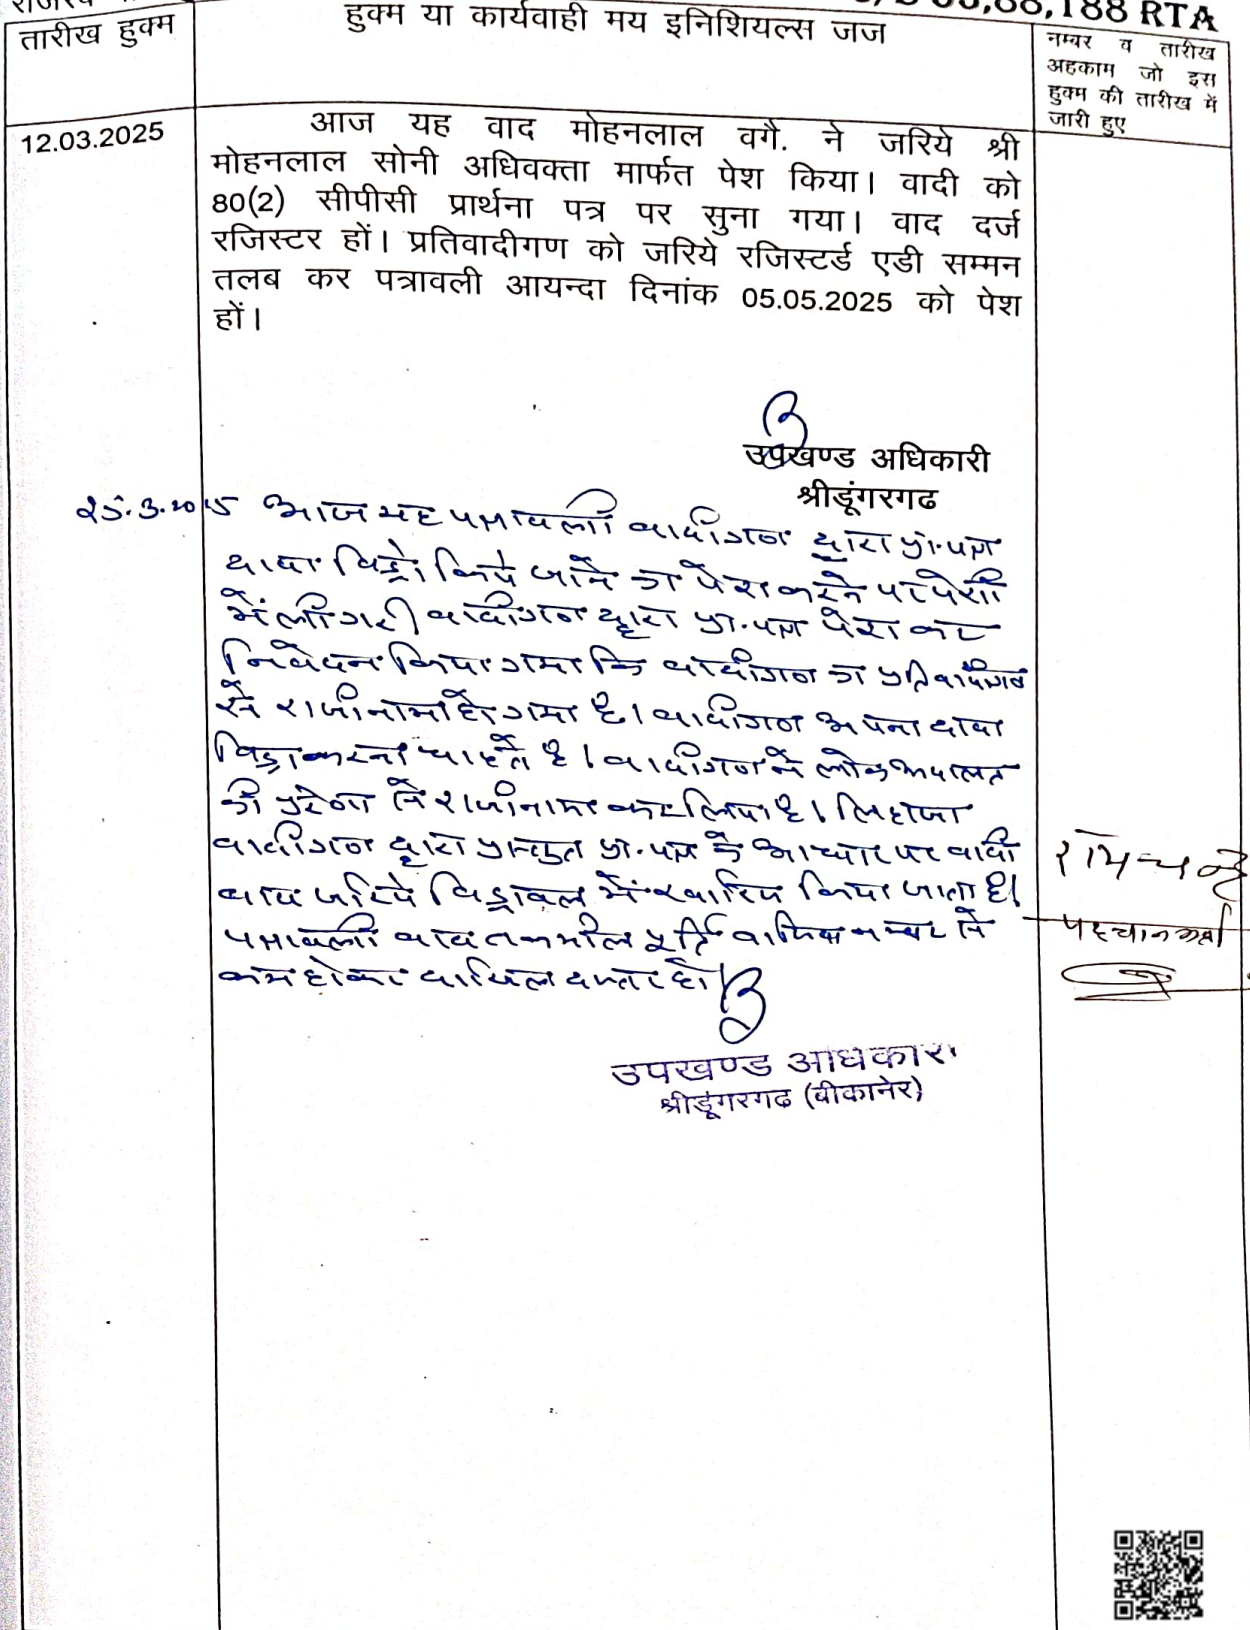 88,188 RTA
तारीख हुक्म
हुक्म या कार्यवाही मय इनिशियल्स जज
नम्बर व तारीख
अहकाम जो इस
हुक्म की तारीख में
जारी हुए
12.03.2025
आज यह वाद मोहनलाल वगै. ने जरिये श्री
मोहनलाल सोनी अधिवक्ता मार्फत पेश किया। वादी को
80(2) सीपीसी प्रार्थना पत्र पर सुना गया। वाद दर्ज
रजिस्टर हों। प्रतिवादीगण को जरिये रजिस्टर्ड एडी सम्मन
तलब कर पत्रावली आयन्दा दिनांक 05.05.2025 को पेश
हों।
उपखण्ड अधिकारी
श्रीडूंगरगढ
25.3.2025 आज यह पत्रावली वादीगण द्वारा प्रा.पत्र
दावा विड्रो किये जाने का पेश करने पर पेशी
में ली गई। वादीगण द्वारा प्रा.पत्र पेश कर
निवेदन किया गया कि वादीगण का प्रतिवादीगण
से राजीनामा हो गया है। वादीगण अपना दावा
विड्रा करना चाहते है। वादीगण ने लोक अदालत
की प्रेरणा से राजीनामा कर लिया है। लिहाजा
वादीगण द्वारा प्रस्तुत प्रा.पत्र के आधार पर वादी
वाद जरिये विड्रावल में खारिज किया जाता है।
पत्रावली बाद तकमील पूर्ति नम्बर से
कम होकर दाखिल दफ्तर हो।
रामचन्द्र
पहचानकर्ता
उपखण्ड अधिकारी
श्रीडूंगरगढ (बीकानेर)